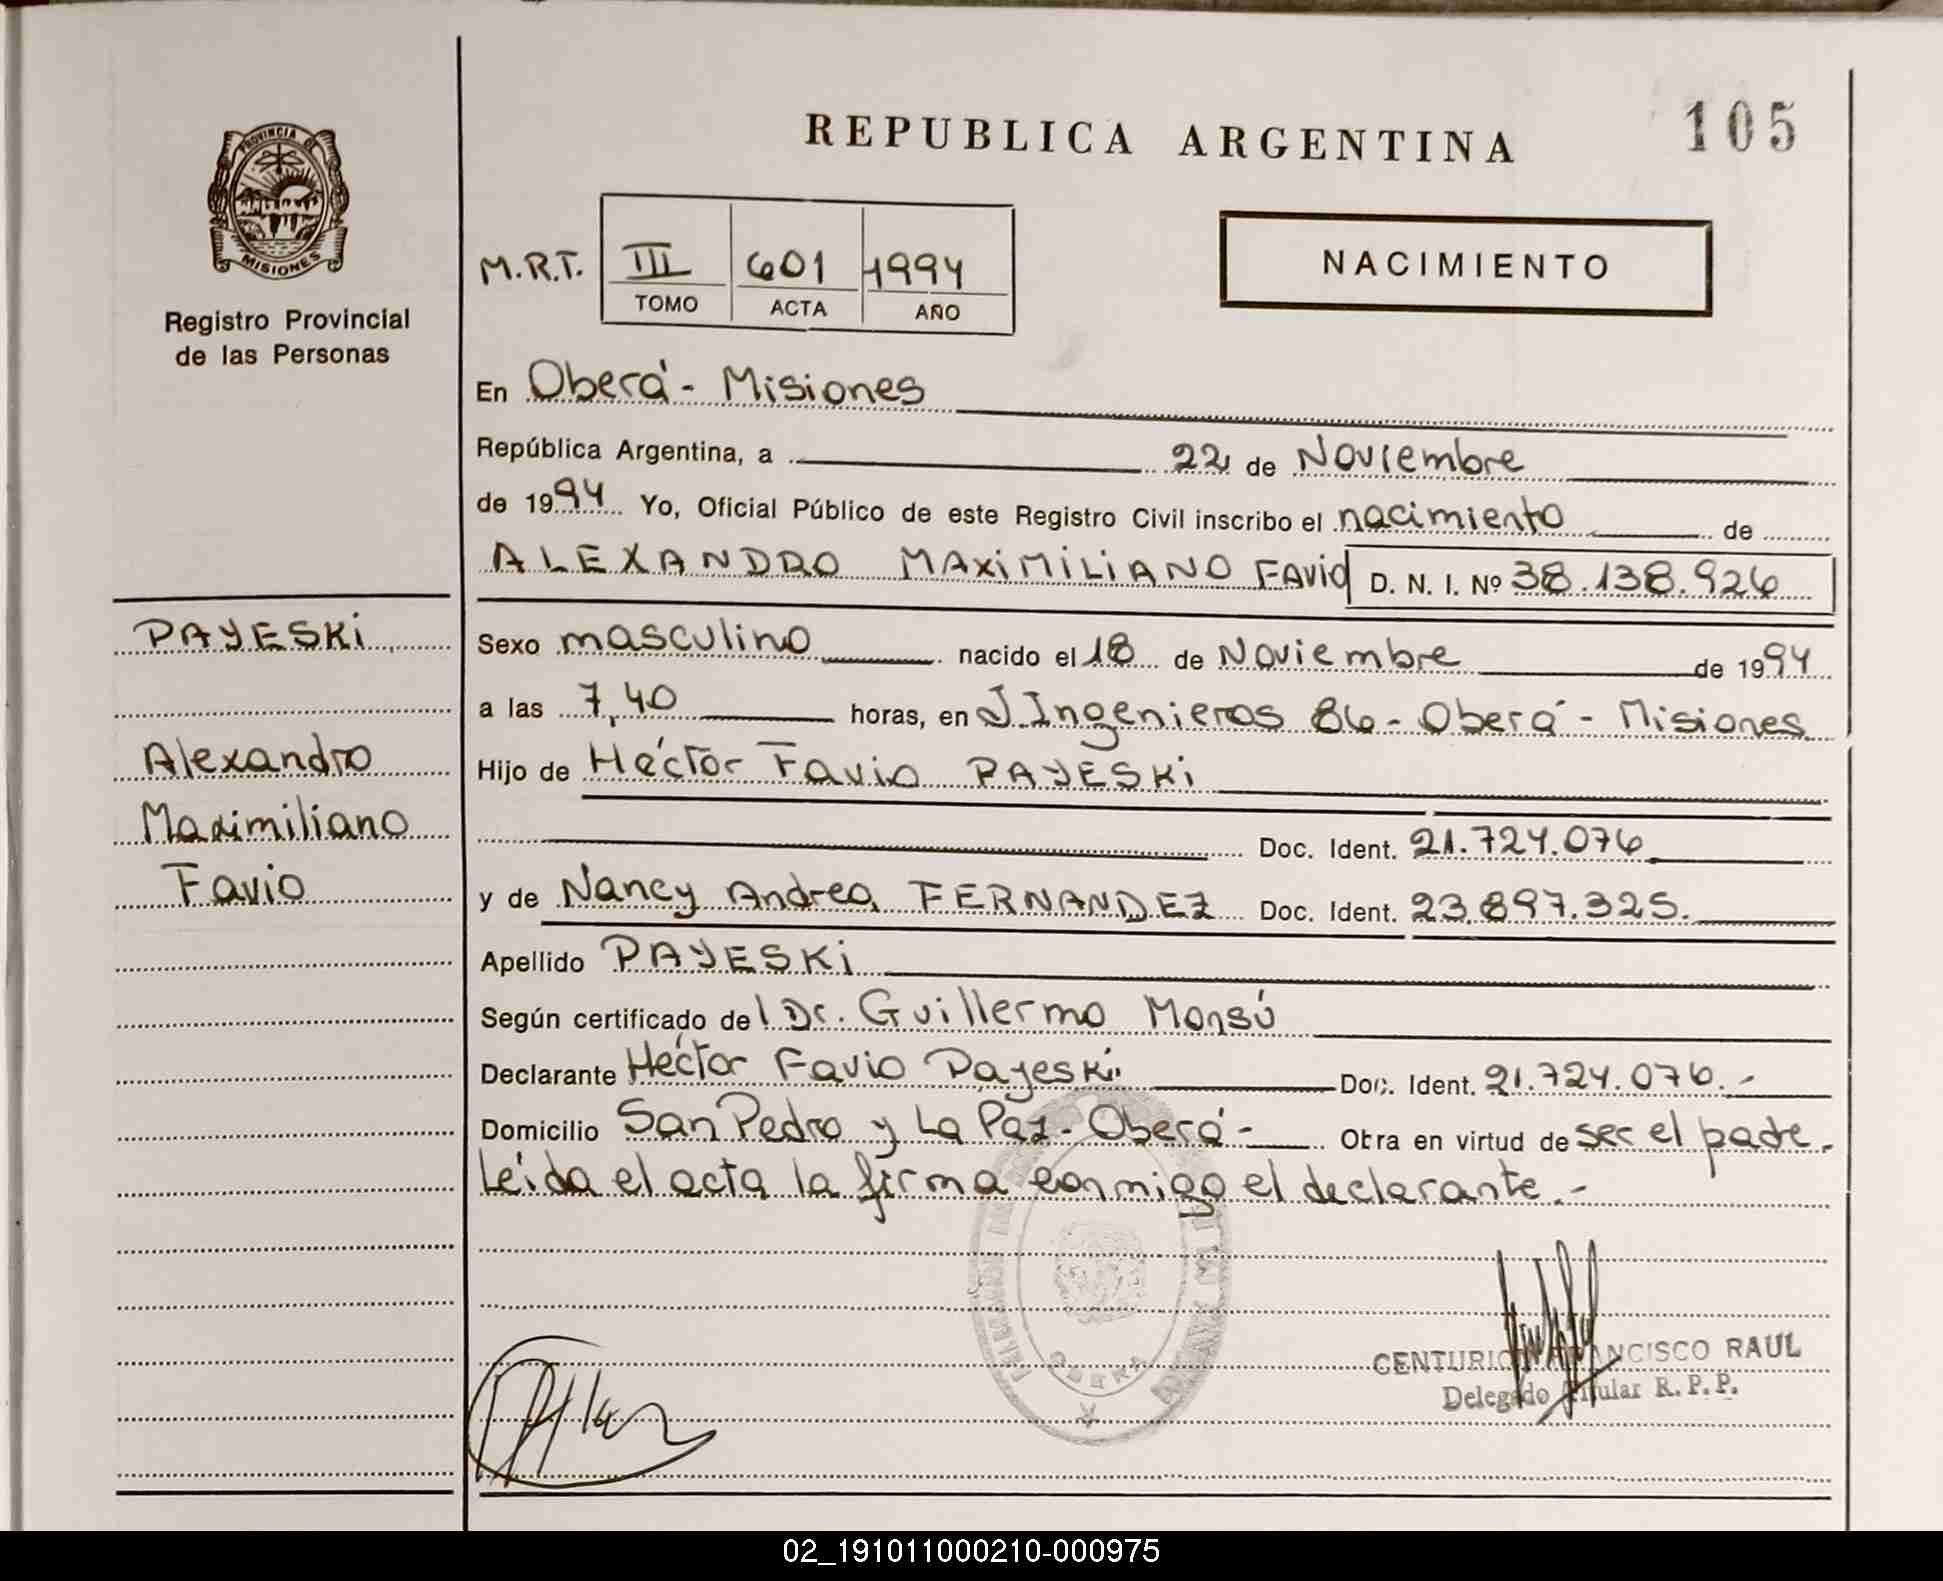 PROVINCIA DE
MISIONES
Registro Provincial
de las Personas
REPUBLICA ARGENTINA
105
M.R.T.
III
601
1994
TOMO
ACTA
AÑO
NACIMIENTO
En Oberá - Misiones
República Argentina, a 22 de Noviembre
de 1994 Yo, Oficial Público de este Registro Civil inscribo el nacimiento de
ALEXANDRO MAXIMILIANO FAVIO D. N. I. Nº 38.138.926
PAYESKI
Alexandro
Maximiliano
Favio
Sexo masculino nacido el 18 de Noviembre de 1994
a las 7,40 horas, en J. Ingenieros 86 - Oberá - Misiones
Hijo de Héctor Favio PAYESKI
Doc. Ident. 21.724.076
y de Nancy Andrea FERNANDEZ Doc. Ident. 23.897.325.
Apellido PAYESKI
Según certificado del Dr. Guillermo Monsú
Declarante Héctor Favio Payeski Doc. Ident. 21.724.076.-
Domicilio San Pedro y La Paz - Oberá - Obra en virtud de ser el padre.
Leída el acta la firma conmigo el declarante.-
OBERA
CENTURION FRANCISCO RAUL
Delegado Titular R. P. P.
02_191011000210-000975